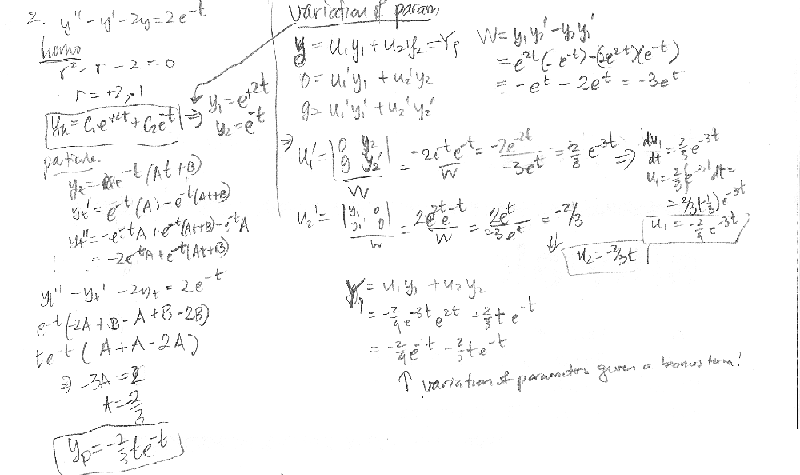 2. y'' - y' - 2y = 2e^-t
homo
r² - r - 2 = 0
r = +2, -1
y_h = C₁e^+2t + C₂e^-t ⇒ y₁ = e^+2t
y₂ = e^-t
particular
e^-t (At + B)
= e^-t(A) - e^-t(At+B)
= -e^-t A + e^-t(At+B) - e^-t A
= -2e^-t A + e^-t(At+B)
- 2y = 2e^-t
e^-t (-2A + B - A + B - 2B)
te^-t (A + A - 2A)
⇒ -3A = 2
A = -2/3
y_p = -2/3 te^-t
variation of param,
y = u₁y₁ + u₂y₂ = Y_p
0 = u₁'y₁ + u₂'y₂
g = u₁'y₁' + u₂'y₂'
W = y₁y₂' - y₂y₁'
= e^2t(-e^-t) - (2e^2t)(e^-t)
= -e^t - 2e^t = -3e^t
⇒ u₁' = |0 y₂ g y₂'| / W = -2e^-t e^-t / W = -2e^-2t / -3e^t = 2/3 e^-3t ⇒ du₁/dt = 2/3 e^-3t
u₁ = 2/3 ∫e^-3t dt =
= 2/3(-1/3)e^-3t
u₁ = -2/9 e^-3t
u₂' = |y₁ 0 y₁' g| / W = 2e^2t e^-t / W = 2e^t / -3e^t = -2/3
⇓ u₂ = -2/3t
Y_p = u₁y₁ + u₂y₂
= -2/9 e^-3t e^2t - 2/3 t e^-t
= -2/9 e^-t - 2/3 te^-t
↑ variation of parameters given a bonus term!